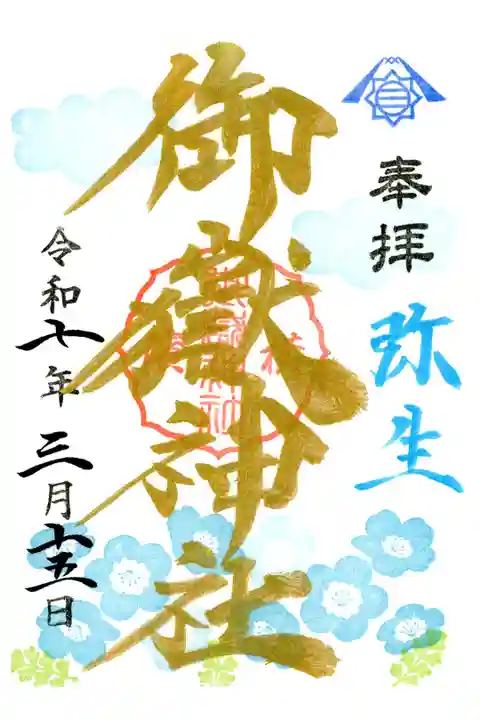 奉拝
弥生
御嶽神社
令和七年三月十五日